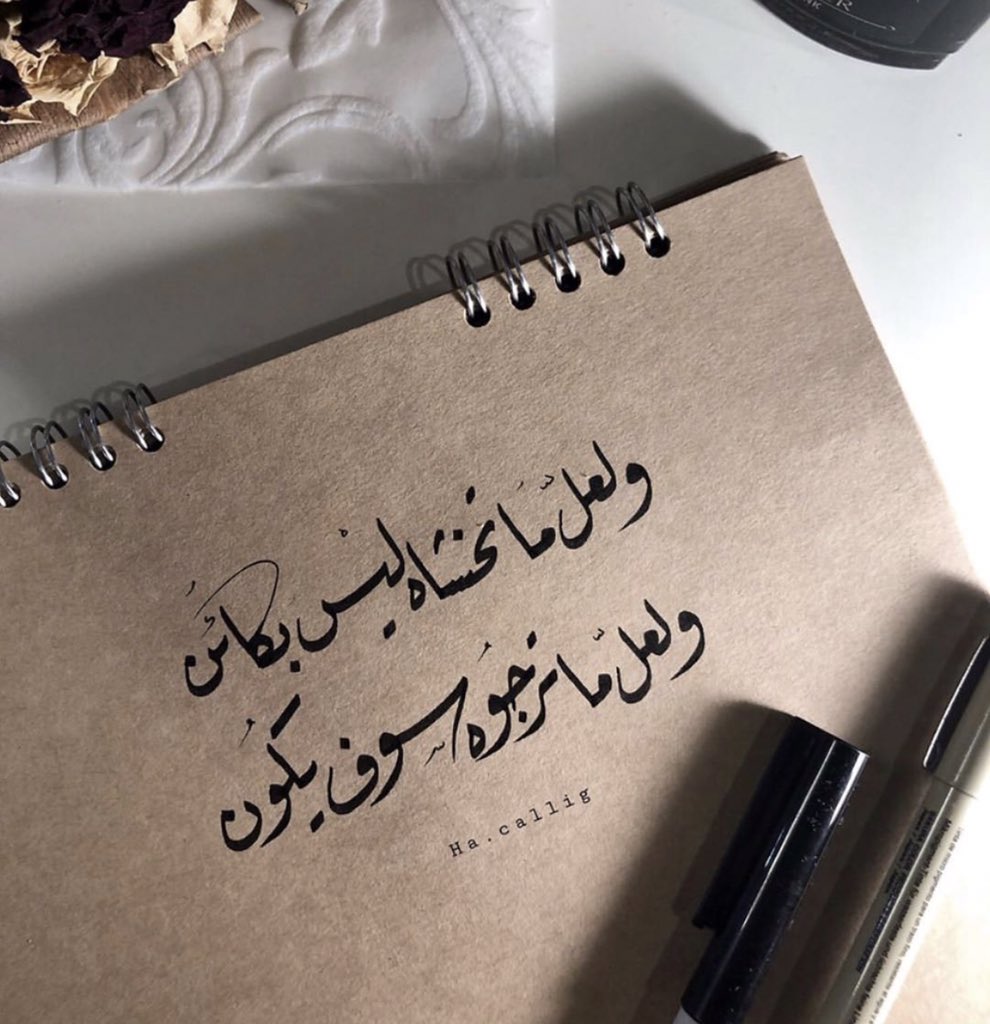 ولعلّ مَا تخشاه ليْس بكائنُ
ولعلّ مّا نرجُوه سوف يكونُ
Ha.callig